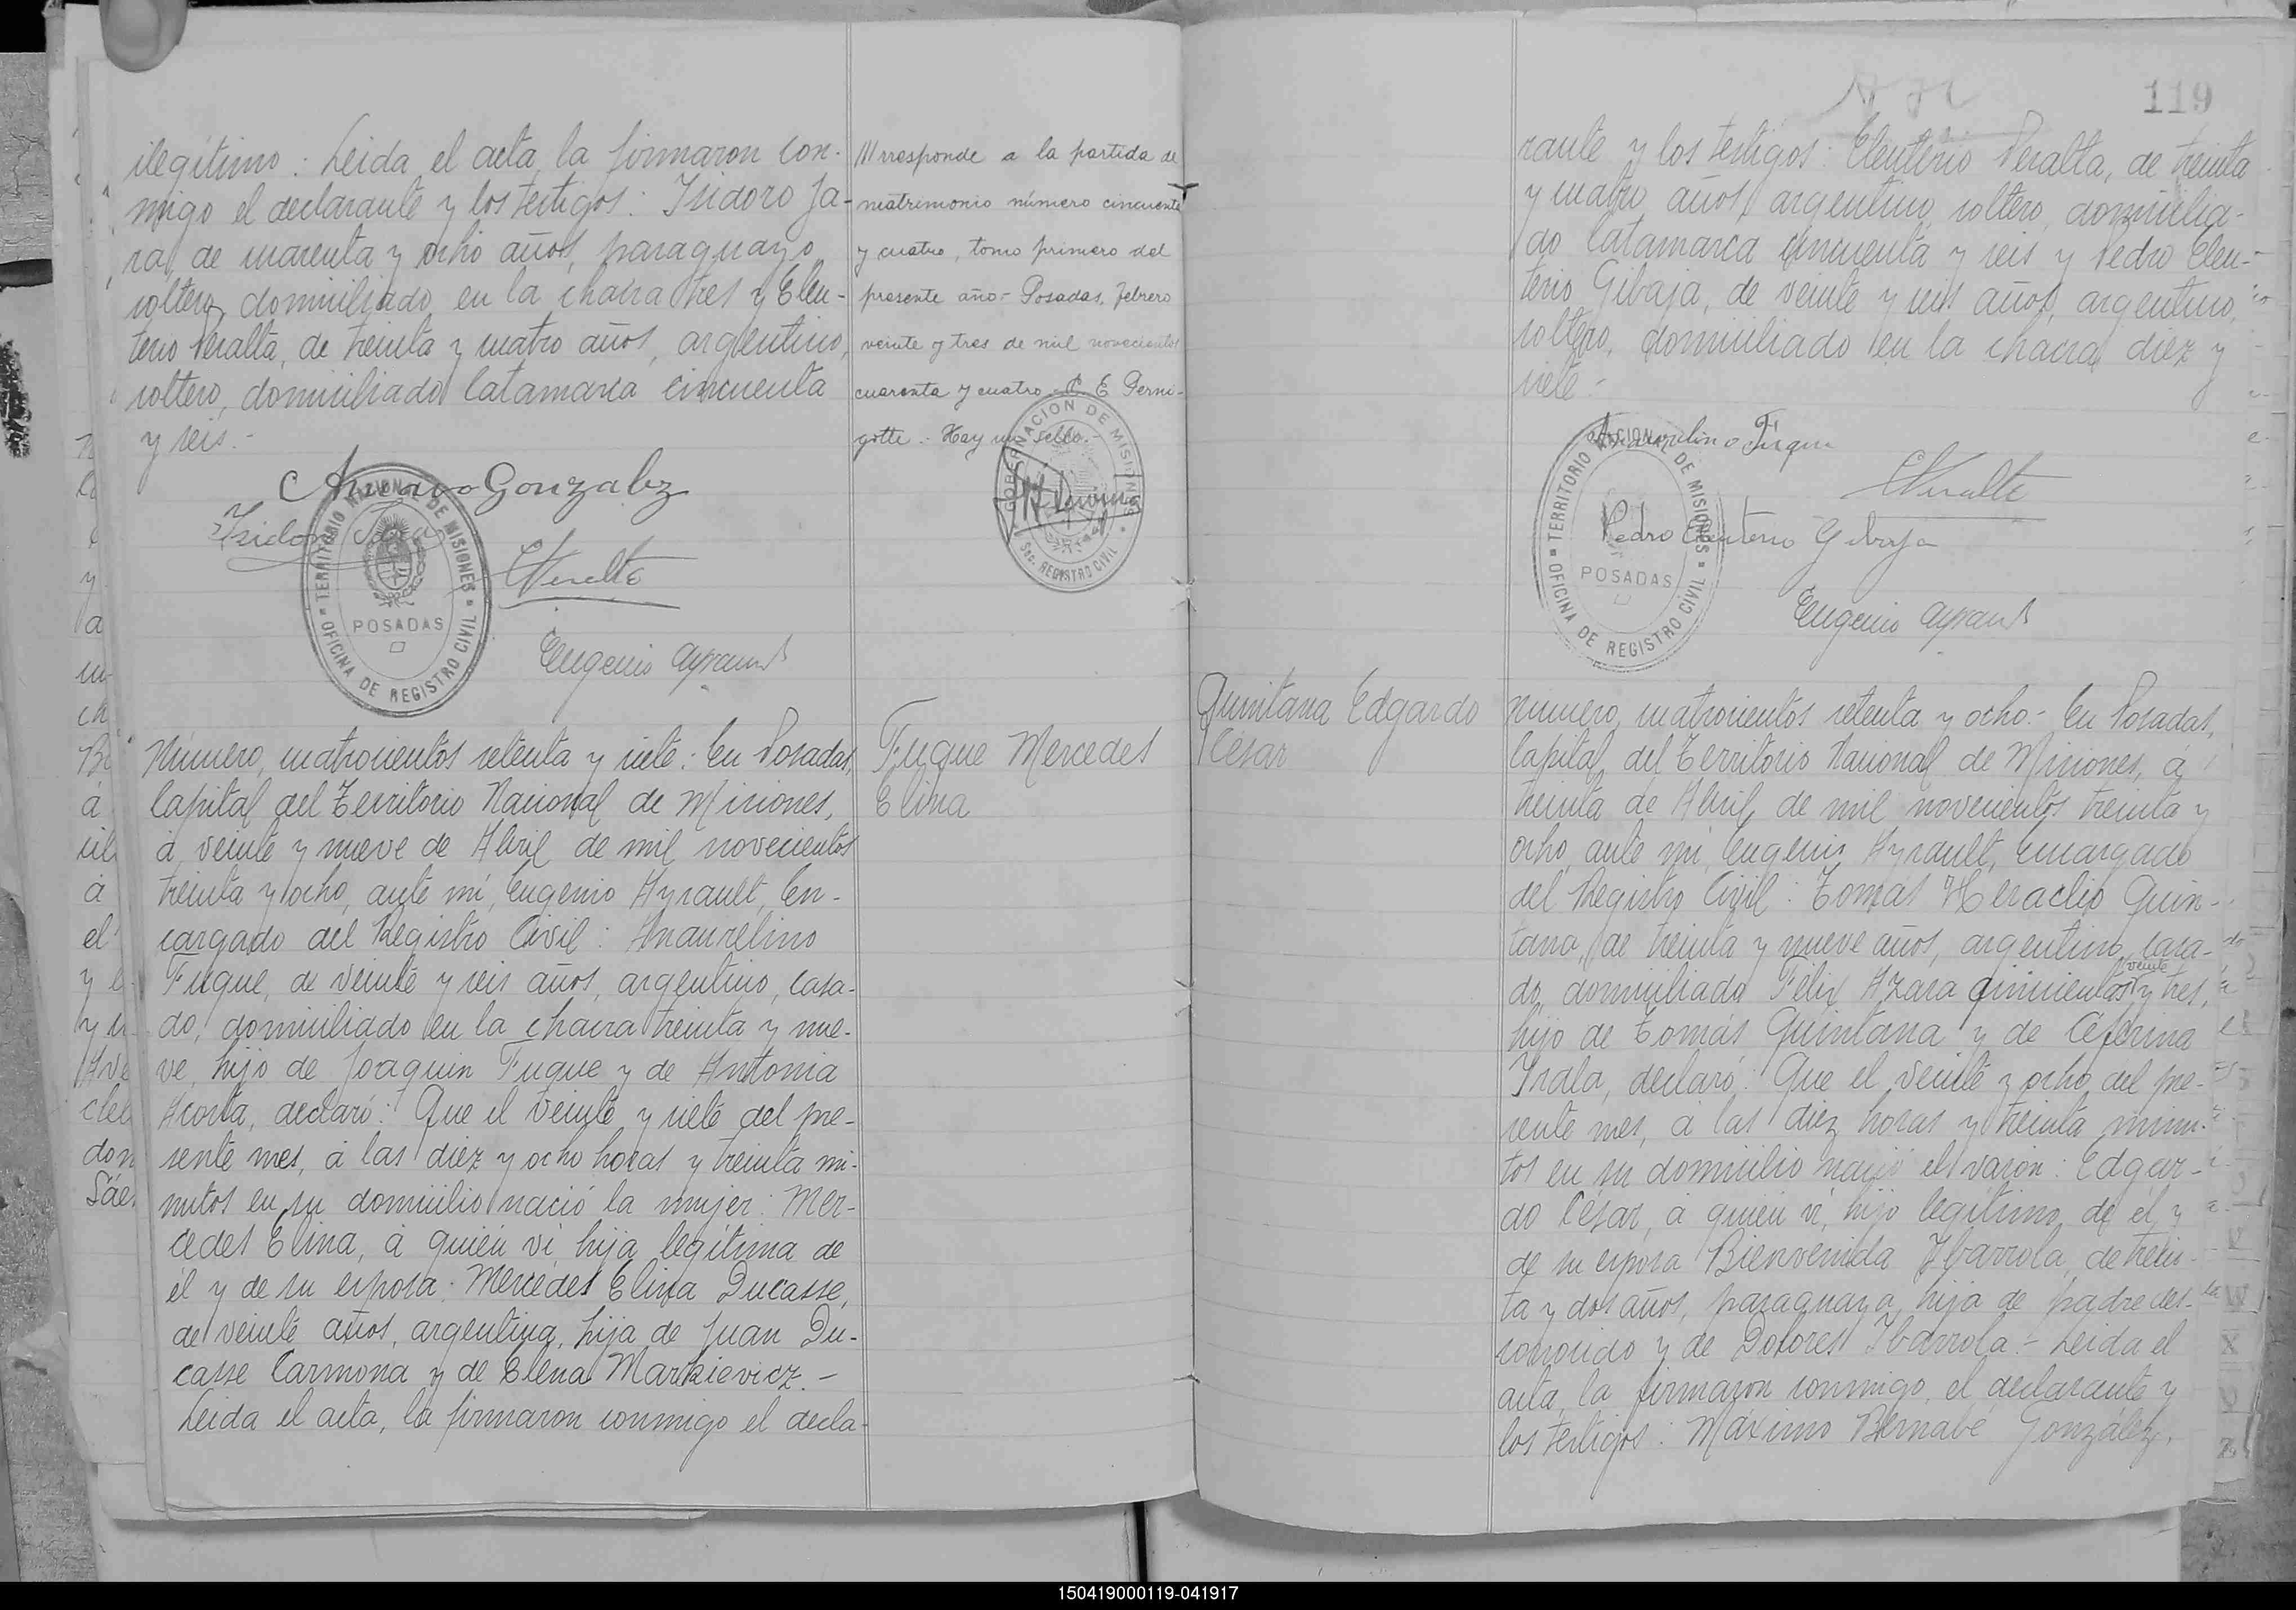 ilegítimo: Leida el acta, la firmaron con-
migo el declarante y los testigos: Isidoro Ja-
ra, de cuarenta y ocho años, paraguayo,
soltero, domiciliado en la chacra tres y Eleu-
terio Peralta, de treinta y cuatro años, argentino,
soltero, domiciliado Catamarca cincuenta
y seis.-
Gonzalez
Isidoro Jara
EPeralta
Eugenio Ayrault
TERRITORIO NACIONAL DE MISIONES
POSADAS
OFICINA DE REGISTRO CIVIL
///rresponde a la partida de
matrimonio número cincuenta
y cuatro, tomo primero del
presente año.- Posadas, Febrero
veinte y tres de mil novecientos
cuarenta y cuatro.- C. E. Perni-
gotte.- Hay un sello.-
GOBERNACION DE MISIONES
Sec. REGISTRO CIVIL
Número, cuatrocientos setenta y siete: En Posadas,
Capital del Territorio Nacional de Misiones,
á veinte y nueve de Abril de mil novecientos
treinta y ocho, ante mí, Eugenio Ayrault, En-
cargado del Registro Civil: Anaurelino
Fuque, de veinte y seis años, argentino, casa-
do, domiciliado en la chacra treinta y nue-
ve, hijo de Joaquin Fuque y de Antonia
Acosta, declaró: Que el veinte y siete del pre-
sente mes, á las diez y ocho horas y treinta mi-
nutos en su domicilio nació la mujer: Mer-
cedes Elina, á quién ví, hija legítima de
él y de su esposa: Mercedes Elina Ducasse,
de veinte años, argentina, hija de Juan Du-
casse Carmona y de Elena Markievicz.-
Leida el acta, la firmaron conmigo el decla-
Fuque Mercedes
Elina
119
rante y los testigos: Eleuterio Peralta, de treinta
y cuatro años, argentino, soltero, domicilia-
do Catamarca cincuenta y seis y Pedro Eleu-
terio Gibaja, de veinte y seis años, argentino,
soltero, domiciliado en la chacra diez y
siete.-
Anaurelino Fuque
EPeralta
Pedro Eleuterio Gibaja
Eugenio Ayrault
TERRITORIO NACIONAL DE MISIONES
POSADAS
OFICINA DE REGISTRO CIVIL
Quintana Edgardo
César
Número, cuatrocientos setenta y ocho.- En Posadas,
Capital del Territorio Nacional de Misiones, á
treinta de Abril de mil novecientos treinta y
ocho, ante mí, Eugenio Ayrault, Encargado
del Registro Civil: Tomás Heraclio Quin-
tana, de treinta y nueve años, argentino, casa-
veinte
do, domiciliado Félix Azara quinientos y tres,
hijo de Tomás Quintana y de Ceferina
Irala, declaró: Que el veinte y ocho del pre-
sente mes, á las diez horas y treinta minu-
tos en su domicilio nació el varón: Edgar-
do César, á quien ví, hijo legítimo de él y
de su esposa Bienvenida Ibarrola, de trein-
ta y dos años, paraguaya, hija de padre des-
conocido y de Dolores Ibarrola.- Leida el
acta, la firmaron conmigo, el declarante y
los testigos: Máximo Bernabé González,
150419000119-041917